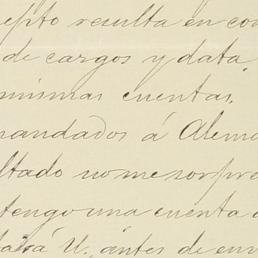 epto resulta en con
de cargos y data,
mismas cuentas.
mandados á Alema
ltado no me sorpre
tengo una cuenta
U., ántes de env